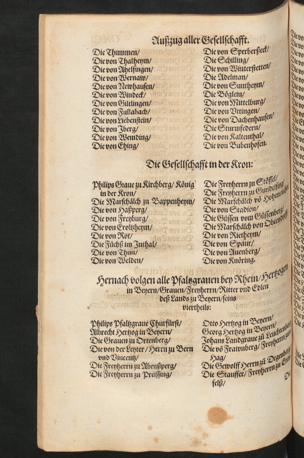 Außzug aller Gesellschafft.
Die Thummen/
Die von Thalheym/
Die von Ahelfingen/
Die von Wernaw/
Die von Newhausen/
Die von Windeck/
Die von Gültlingen/
Die von Fullabach/
Die von Liebenstein/
Die von Iberg/
Die von Wemding/
Die von Ehing/
Die von Sperberseck/
Die Schilling/
Die von Winterstetten/
Die Adelman/
Die von Suntheym/
Die Böglein/
Die von Mittelburg/
Die von Vringen/
Die von Dachenhausen/
Die Sturmfedern/
Die von Kaltenthal/
Die von Bubenhofen.
Die Gesellschafft in der Kron:
Philips Graue zu Kirchberg/ König
in der Kron/
Die Marschälck zu Bappenheym/
Die von Haßperg/
Die von Freyburg/
Die von Eroltzheym/
Die von Rot/
Die Füchß im Inthal/
Die von Thun/
Die von Welden/
Die Freyherrn zu Stöffel/
Die Freyherrn zu Gundelfing
Die Marschälck võ Hohenr
Die von Stadion/
Die Güssen von Güssenberg
Die Marschälck von Oberdorff
Die von Rietheym/
Die von Spaur/
Die von Auenberg/
Die von Knöring.
Hernach volgen alle Pfaltzgrauen bey Rhein/ Hertzogen
in Beyern/ Grauen/ Freyherrn/ Ritter und Edlen
deß Lands zu Beyern/ seins
viertheils:
Philips Pfaltzgraue Churfürst/
Albrecht Hertzog in Beyern/
Die Grauen zu Ortenberg/
Die von der Leyter/ Herrn zu Bern
und Vincentz/
Die Freyherrn zu Abenßperg/
Die Freyherrn zu Preising/
Otto Hertzog in Beyern/
Georg Hertzog in Beyern/
Johans Landgraue zu Leuchtenberg
Die võ Frawnberg/ Freyherrn zum
Hag/
Die Gewolff Herrn zu Degenberg
Die Stauffer/ Freyherrn zu Ern
felß/